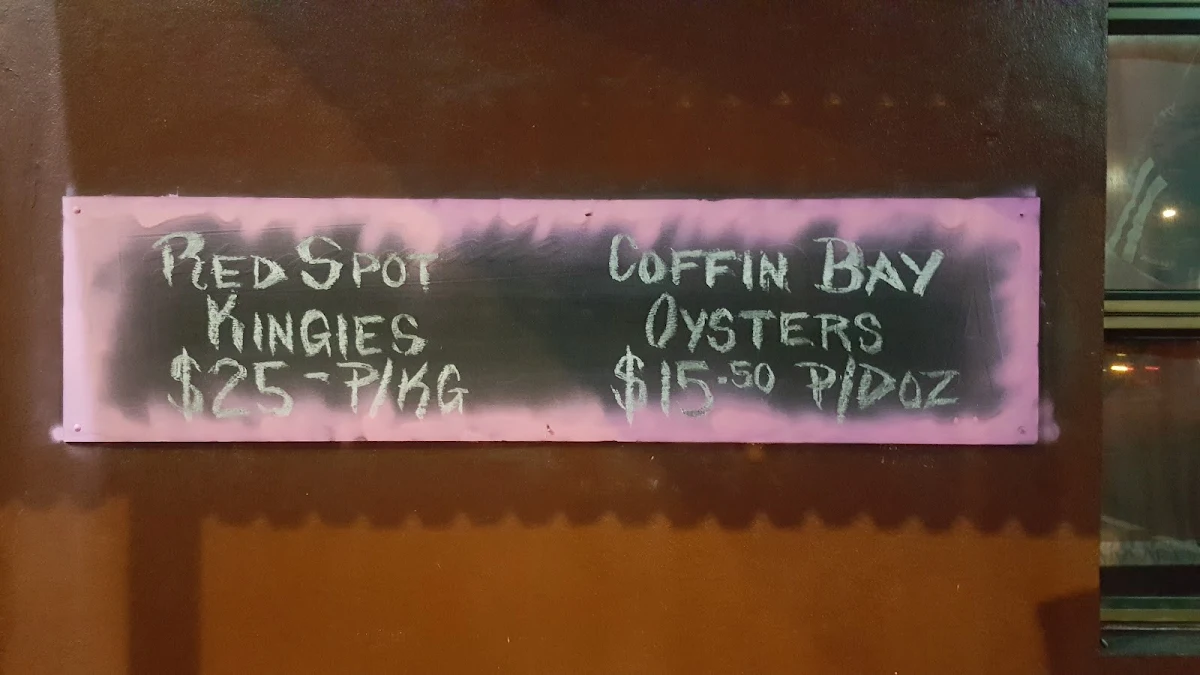 RED SPOT
KINGIES
$25-P/KG
COFFIN BAY
OYSTERS
$15.50 P/DOZ